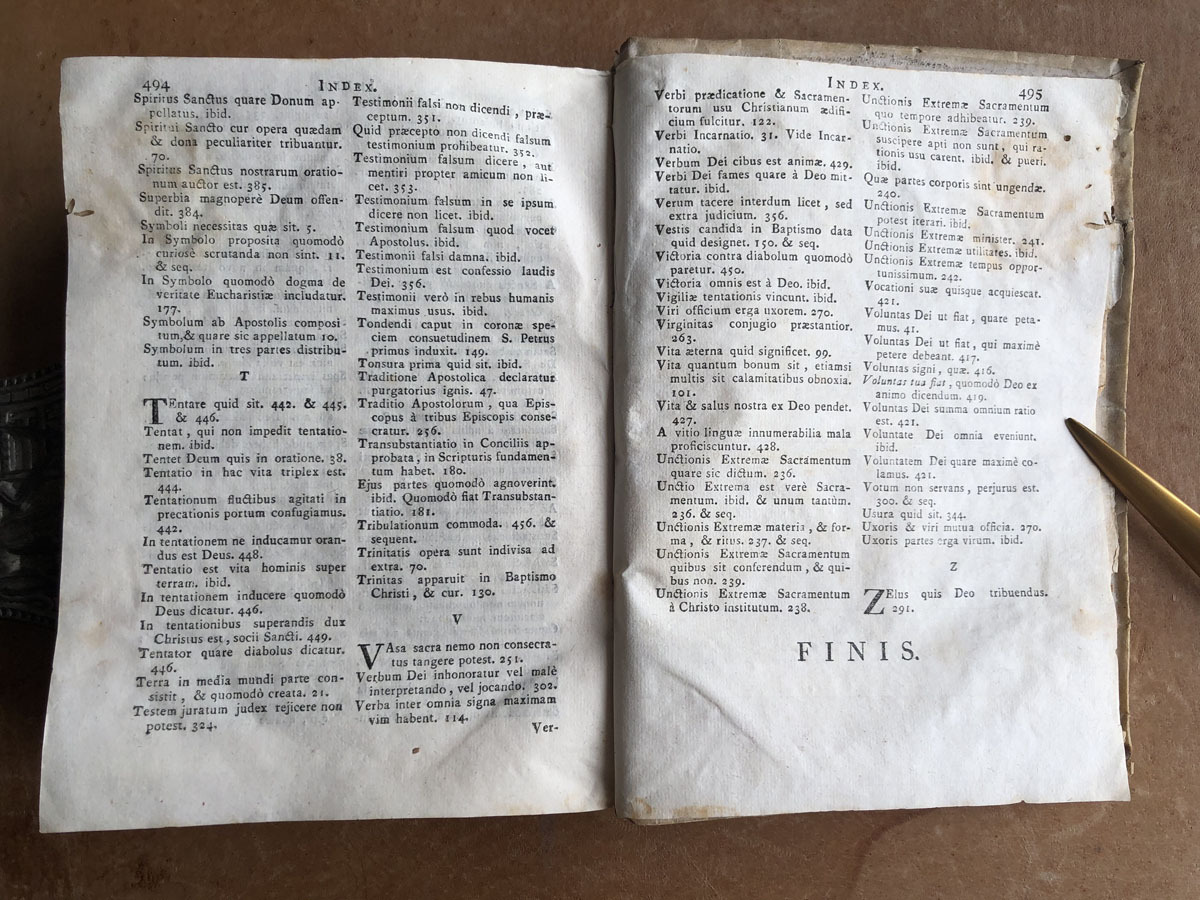 494
INDEX.
Spiritus Sanctus quare Donum ap-
pellatus. ibid.
Spiritui Sancto cur opera quædam
& dona peculiariter tribuantur.
70.
Spiritus Sanctus nostrarum oratio-
num auctor est. 385.
Superbia magnoperè Deum offen-
dit. 384.
Symboli necessitas quæ sit. 5.
In Symbolo proposita quomodò
curiosè scrutanda non sint. 11.
& seq.
In Symbolo quomodò dogma de
veritate Eucharistiæ includatur.
177.
Symbolum ab Apostolis composi-
tum,& quare sic appellatum 10.
Symbolum in tres partes distribu-
tum. ibid.
T
TEntare quid sit. 442. & 445.
& 446.
Tentat, qui non impedit tentatio-
nem. ibid.
Tentet Deum quis in oratione. 38.
Tentatio in hac vita triplex est.
444.
Tentationum fluctibus agitati in
precationis portum confugiamus.
442.
In tentationem ne inducamur oran-
dus est Deus. 448.
Tentatio est vita hominis super
terram. ibid.
In tentationem inducere quomodò
Deus dicatur. 446.
In tentationibus superandis dux
Christus est, socii Sancti. 449.
Tentator quare diabolus dicatur.
446.
Terra in media mundi parte con-
sistit, & quomodò creata. 21.
Testem juratum judex rejicere non
potest. 324.
Testimonii falsi non dicendi, præ-
ceptum. 351.
Quid præcepto non dicendi falsum
testimonium prohibeatur. 352.
Testimonium falsum dicere, aut
mentiri propter amicum non li-
cet. 353.
Testimonium falsum in se ipsum
dicere non licet. ibid.
Testimonium falsum quod vocet
Apostolus. ibid.
Testimonii falsi damna. ibid.
Testimonium est confessio laudis
Dei. 356.
Testimonii verò in rebus humanis
maximus usus. ibid.
Tondendi caput in coronæ spe-
ciem consuetudinem S. Petrus
primus induxit. 149.
Tonsura prima quid sit. ibid.
Traditione Apostolica declaratur
purgatorius ignis. 47.
Traditio Apostolorum, qua Epis-
copus à tribus Episcopis conse-
cratur. 256.
Transubstantiatio in Conciliis ap-
probata, in Scripturis fundamen-
tum habet. 180.
Ejus partes quomodò agnoverint.
ibid. Quomodò fiat Transubstan-
tiatio. 181.
Tribulationum commoda. 456. &
sequent.
Trinitatis opera sunt indivisa ad
extra. 70.
Trinitas apparuit in Baptismo
Christi, & cur. 130.
V
VAsa sacra nemo non consecra-
tus tangere potest. 251.
Verbum Dei inhonoratur vel malè
interpretando, vel jocando. 302.
Verba inter omnia signa maximam
vim habent. 114.
Ver-
INDEX.
495
Verbi prædicatione & Sacramen-
torum usu Christianum ædifi-
cium fulcitur. 122.
Verbi Incarnatio. 31. Vide Incar-
natio.
Verbum Dei cibus est animæ. 429.
Verbi Dei fames quare à Deo mit-
tatur. ibid.
Verum tacere interdum licet, sed
extra judicium. 356.
Vestis candida in Baptismo data
quid designet. 150. & seq.
Victoria contra diabolum quomodò
paretur. 450.
Victoria omnis est à Deo. ibid.
Vigiliæ tentationis vincunt. ibid.
Viri officium erga uxorem. 270.
Virginitas conjugio præstantior.
263.
Vita æterna quid significet. 99.
Vita quantum bonum sit, etiamsi
multis sit calamitatibus obnoxia.
101.
Vita & salus nostra ex Deo pendet.
427.
A vitio linguæ innumerabilia mala
proficiscuntur. 428.
Unctionis Extremæ Sacramentum
quare sic dictum. 236.
Unctio Extrema est verè Sacra-
mentum. ibid. & unum tantùm.
236. & seq.
Unctionis Extremæ materia, & for-
ma, & ritus. 237. & seq.
Unctionis Extremæ Sacramentum
quibus sit conferendum, & qui-
bus non. 239.
Unctionis Extremæ Sacramentum
à Christo institutum. 238.
Unctionis Extremæ Sacramentum
quo tempore adhibeatur. 239.
Unctionis Extremæ Sacramentum
suscipere apti non sunt, qui ra-
tionis usu carent. ibid. & pueri.
ibid.
Quæ partes corporis sint ungendæ.
240.
Unctionis Extremæ Sacramentum
potest iterari. ibid.
Unctionis Extremæ minister. 241.
Unctionis Extremæ utilitates. ibid.
Unctionis Extremæ tempus oppor-
tunissimum. 242.
Vocationi suæ quisque acquiescat.
421.
Voluntas Dei ut fiat, quare peta-
mus. 41.
Voluntas Dei ut fiat, qui maximè
petere debeant. 417.
Voluntas signi, quæ. 416.
Voluntas tua fiat, quomodò Deo ex
animo dicendum. 419.
Voluntas Dei summa omnium ratio
est. 421.
Voluntate Dei omnia eveniunt.
ibid.
Voluntatem Dei quare maximè co-
lamus. 421.
Votum non servans, perjurus est.
300. & seq.
Usura quid sit. 344.
Uxoris & viri mutua officia. 270.
Uxoris partes erga virum. ibid.
Z
ZElus quis Deo tribuendus.
291.
FINIS.